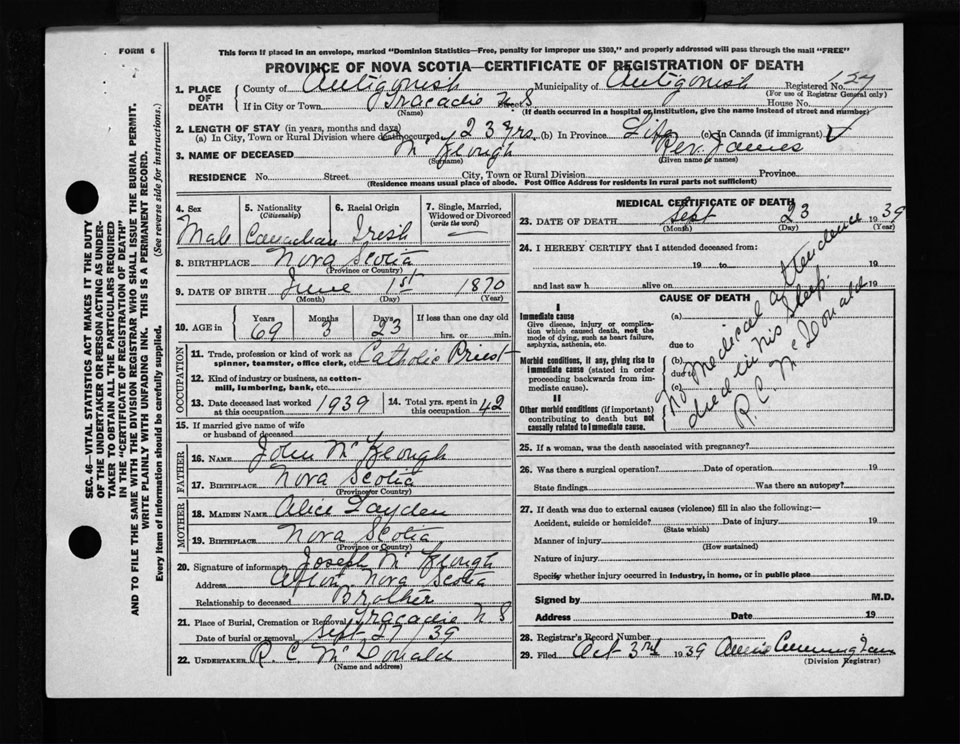 FORM 6
This form if placed in an envelope, marked "Dominion Statistics—Free, penalty for improper use $300," and properly addressed will pass through the mail "FREE"
PROVINCE OF NOVA SCOTIA—CERTIFICATE OF REGISTRATION OF DEATH
1. PLACE OF DEATH
County of Antigonish Municipality of Antigonish Registered No. 
(For use of Registrar General only)
If in City or Town Tracadie N.S Street House No.
(Name) (If death occurred in a hospital or institution, give the name instead of street and number)
2. LENGTH OF STAY (in years, months and days)
(a) In City, Town or Rural Division where death occurred 23 yrs. (b) In Province Life (c) in Canada (if immigrant)
3. NAME OF DECEASED McKeough Rev. James
(Surname) (Given name or names)
RESIDENCE No. Street City, Town or Rural Division Province
(Residence means usual place of abode. Post Office Address for residents in rural parts not sufficient)
4. Sex Male
5. Nationality (Citizenship) Canadian
6. Racial Origin Iresh
7. Single, Married, Widowed or Divorced (write the word) —
8. BIRTHPLACE Nova Scotia
(Province or Country)
9. DATE OF BIRTH June 1st 1870
(Month) (Day) (Year)
10. AGE in Years Months Days If less than one day old
69 3 23 hrs. or min.
OCCUPATION
11. Trade, profession or kind of work as spinner, teamster, office clerk, etc. Catholic Priest
12. Kind of industry or business, as cotton-mill, lumbering, bank, etc.
13. Date deceased last worked at this occupation 1939
14. Total yrs. spent in this occupation 42
15. If married give name of wife or husband of deceased
FATHER
16. NAME John McKeough
17. BIRTHPLACE Nova Scotia
(Province or Country)
MOTHER
18. MAIDEN NAME Alice Hayden
19. BIRTHPLACE Nova Scotia
(Province or Country)
20. Signature of informant Joseph McKeough
Address Afton Nova Scotia
Relationship to deceased Brother
21. Place of Burial, Cremation or Removal Tracadie N S
Date of burial or removal Sept 27/39
22. UNDERTAKER R. C. McDonald
(Name and address)
MEDICAL CERTIFICATE OF DEATH
23. DATE OF DEATH Sept 23 1939
(Month) (Day) (Year)
24. I HEREBY CERTIFY that I attended deceased from:
19 to 19
and last saw h alive on 19
CAUSE OF DEATH
I
Immediate cause
Give disease, injury or complication which caused death, not the mode of dying, such as heart failure, asphyxia, asthenia, etc.
(a)
due to
Morbid conditions, if any, giving rise to immediate cause (stated in order proceeding backwards from immediate cause).
(b)
due to
(c)
II
Other morbid conditions (if important) contributing to death but not causally related to immediate cause.
No medical attendence
died in his sleep
R. C. McDonald
25. If a woman, was the death associated with pregnancy?
26. Was there a surgical operation? Date of operation 19
State findings Was there an autopsy?
27. If death was due to external causes (violence) fill in also the following:—
Accident, suicide or homicide? Date of injury 19
(State which)
Manner of injury
(How sustained)
Nature of injury
Specify whether injury occurred in industry, in home, or in public place
Signed by M.D.
Address Date 19
28. Registrar's Record Number
29. Filed Oct 3rd 1939 Annie Cunningham
(Division Registrar)
SEC. 46—VITAL STATISTICS ACT MAKES IT THE DUTY
OF THE UNDERTAKER OR PERSON ACTING AS UNDERTAKER TO OBTAIN ALL THE PARTICULARS REQUIRED
IN THE "CERTIFICATE OF REGISTRATION OF DEATH" AND TO FILE THE SAME WITH THE DIVISION REGISTRAR WHO SHALL ISSUE THE BURIAL PERMIT.
WRITE PLAINLY WITH UNFADING INK. THIS IS A PERMANENT RECORD.
Every item of information should be carefully supplied. (See reverse side for instructions.)